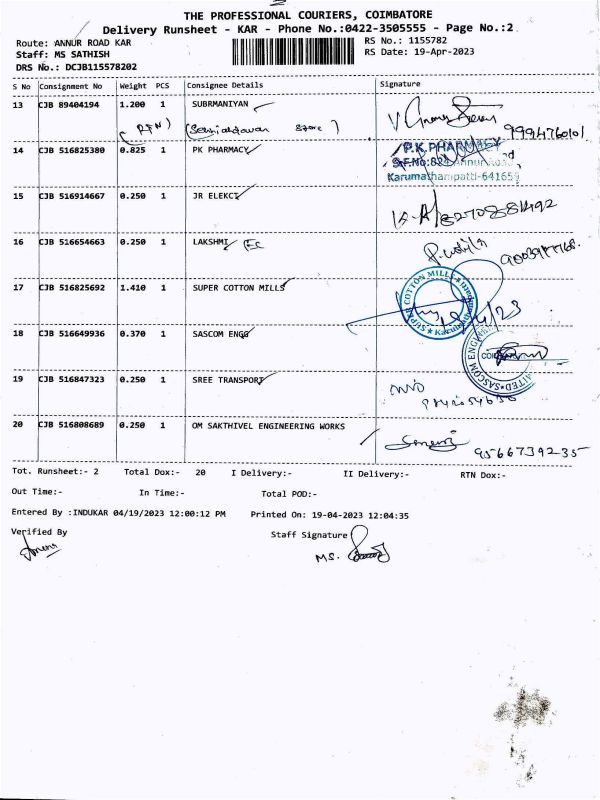 THE PROFESSIONAL COURIERS, COIMBATORE
Delivery Runsheet - KAR - Phone No.:0422-3505555 - Page No.:2
Route: ANNUR ROAD KAR
RS No.: 1155782
Staff: MS SATHISH
RS Date: 19-Apr-2023
DRS No.: DCJB115578202
S No Consignment No Weight PCS Consignee Details Signature
13 CJB 89404194 1.200 1 SUBRMANIYAN
Store 9994760101
14 CJB 516825380 0.825 1 PK PHARMACY P.K.PHARMACY
S.F.No:824, Annur Road,
Karumathampatti-641659
15 CJB 516914667 0.250 1 JR ELEKCT
16 CJB 516654663 0.250 1 LAKSHMI EC
17 CJB 516825692 1.410 1 SUPER COTTON MILLS SUPER COTTON MILLS 19/4/23
18 CJB 516649936 0.370 1 SASCOM ENGG SASCOM
19 CJB 516847323 0.250 1 SREE TRANSPORT
20 CJB 516808689 0.250 1 OM SAKTHIVEL ENGINEERING WORKS
9566739235
Tot. Runsheet:- 2 Total Dox:- 20 I Delivery:- II Delivery:- RTN Dox:-
Out Time:- In Time:- Total POD:-
Entered By :INDUKAR 04/19/2023 12:00:12 PM Printed On: 19-04-2023 12:04:35
Verified By Staff Signature
MS.